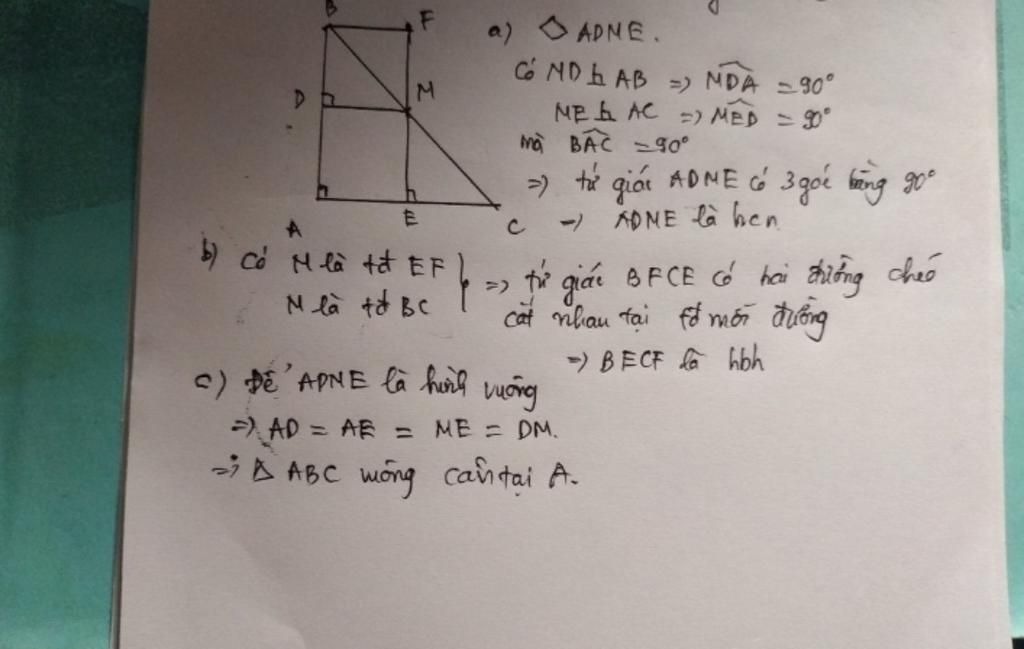 B F
D M
A E C
a) ◇ ADME.
Có MD ⊥ AB => MDA = 90°
ME ⊥ AC => MED = 90°
mà BAC = 90°
=> tứ giác ADME có 3 góc bằng 90°
=> ADME là hcn
b) Có M là tđ EF
M là tđ BC
=> tứ giác BFCE có hai đường chéo
cắt nhau tại tđ mỗi đường
=> BECF là hbh
c) Để ADME là hình vuông
=> AD = AE = ME = DM.
=> Δ ABC vuông cân tại A.